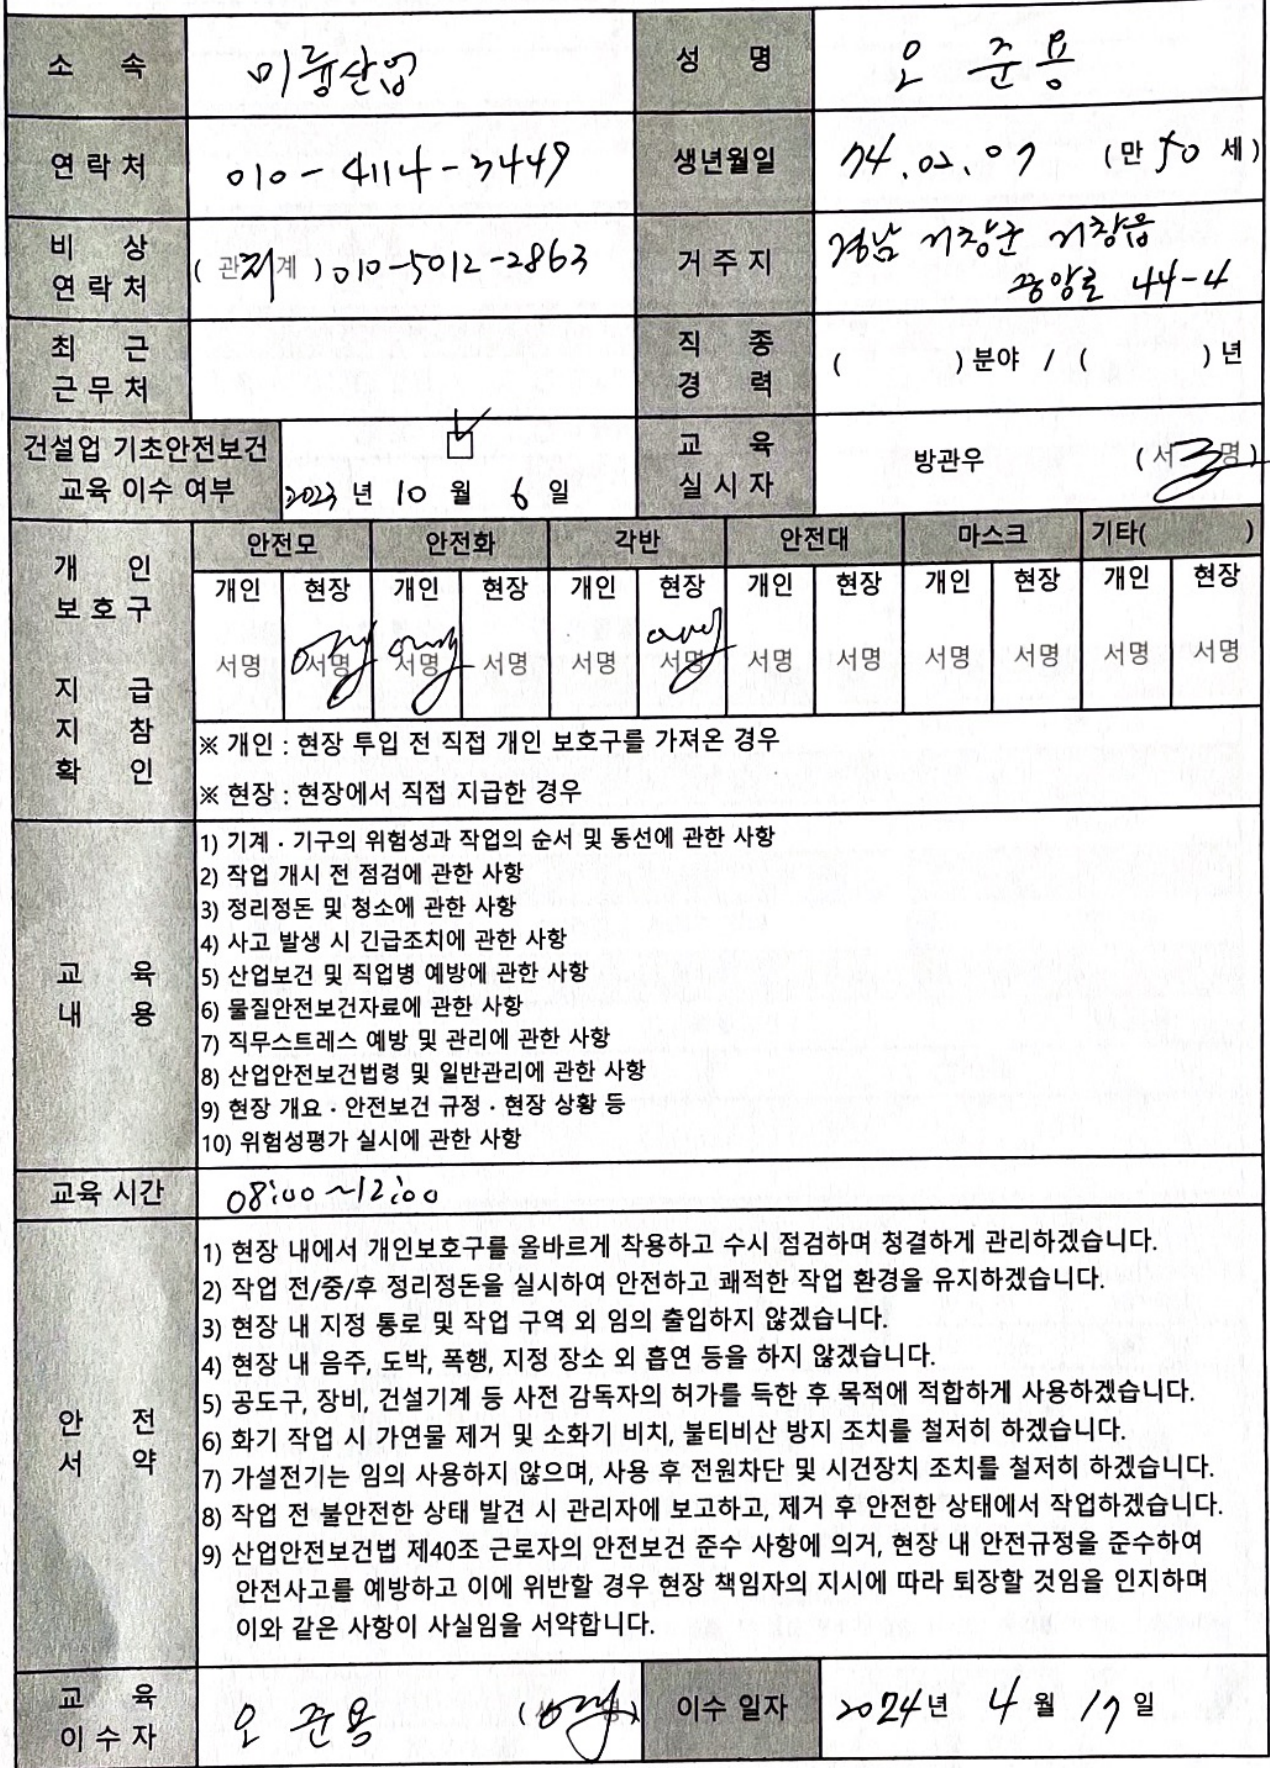 소 속 미륭산업 성 명 오 준용
연락처 010-4114-3449 생년월일 74.02.07 (만 50 세)
비 상
연락처 (관 계) 010-5012-2863 거주지 경남 거창군 거창읍
중앙로 44-4
최 근
근무처
직 종
경 력 ( ) 분야 / ( ) 년
건설업 기초안전보건
교육 이수 여부 2023 년 10 월 6 일
교 육
실시자 방관우 (서명)
개 인
보호구
지 급
지 참
확 인
안전모 안전화 각반 안전대 마스크 기타( )
개인 현장 개인 현장 개인 현장 개인 현장 개인 현장 개인 현장
서명 서명 서명 서명 서명 서명 서명 서명 서명 서명 서명 서명
※ 개인 : 현장 투입 전 직접 개인 보호구를 가져온 경우
※ 현장 : 현장에서 직접 지급한 경우
교 육
내 용
1) 기계 · 기구의 위험성과 작업의 순서 및 동선에 관한 사항
2) 작업 개시 전 점검에 관한 사항
3) 정리정돈 및 청소에 관한 사항
4) 사고 발생 시 긴급조치에 관한 사항
5) 산업보건 및 직업병 예방에 관한 사항
6) 물질안전보건자료에 관한 사항
7) 직무스트레스 예방 및 관리에 관한 사항
8) 산업안전보건법령 및 일반관리에 관한 사항
9) 현장 개요 · 안전보건 규정 · 현장 상황 등
10) 위험성평가 실시에 관한 사항
교육 시간 08:00 ~12:00
안 전
서 약
1) 현장 내에서 개인보호구를 올바르게 착용하고 수시 점검하며 청결하게 관리하겠습니다.
2) 작업 전/중/후 정리정돈을 실시하여 안전하고 쾌적한 작업 환경을 유지하겠습니다.
3) 현장 내 지정 통로 및 작업 구역 외 임의 출입하지 않겠습니다.
4) 현장 내 음주, 도박, 폭행, 지정 장소 외 흡연 등을 하지 않겠습니다.
5) 공도구, 장비, 건설기계 등 사전 감독자의 허가를 득한 후 목적에 적합하게 사용하겠습니다.
6) 화기 작업 시 가연물 제거 및 소화기 비치, 불티비산 방지 조치를 철저히 하겠습니다.
7) 가설전기는 임의 사용하지 않으며, 사용 후 전원차단 및 시건장치 조치를 철저히 하겠습니다.
8) 작업 전 불안전한 상태 발견 시 관리자에 보고하고, 제거 후 안전한 상태에서 작업하겠습니다.
9) 산업안전보건법 제40조 근로자의 안전보건 준수 사항에 의거, 현장 내 안전규정을 준수하여
안전사고를 예방하고 이에 위반할 경우 현장 책임자의 지시에 따라 퇴장할 것임을 인지하며
이와 같은 사항이 사실임을 서약합니다.
교 육
이수자 오 준용 이수 일자 2024년 4 월 17 일